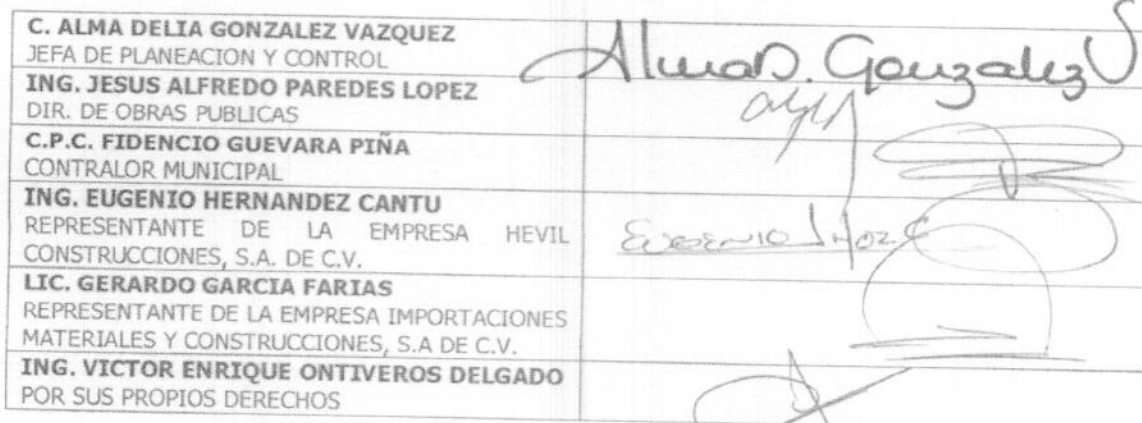 C. ALMA DELIA GONZALEZ VAZQUEZ
JEFA DE PLANEACION Y CONTROL
AlmaD. Gonzalez V
ING. JESUS ALFREDO PAREDES LOPEZ
DIR. DE OBRAS PUBLICAS
C.P.C. FIDENCIO GUEVARA PIÑA
CONTRALOR MUNICIPAL
ING. EUGENIO HERNANDEZ CANTU
REPRESENTANTE DE LA EMPRESA HEVIL
CONSTRUCCIONES, S.A. DE C.V.
EUGENIO HDZ C
LIC. GERARDO GARCIA FARIAS
REPRESENTANTE DE LA EMPRESA IMPORTACIONES
MATERIALES Y CONSTRUCCIONES, S.A DE C.V.
ING. VICTOR ENRIQUE ONTIVEROS DELGADO
POR SUS PROPIOS DERECHOS